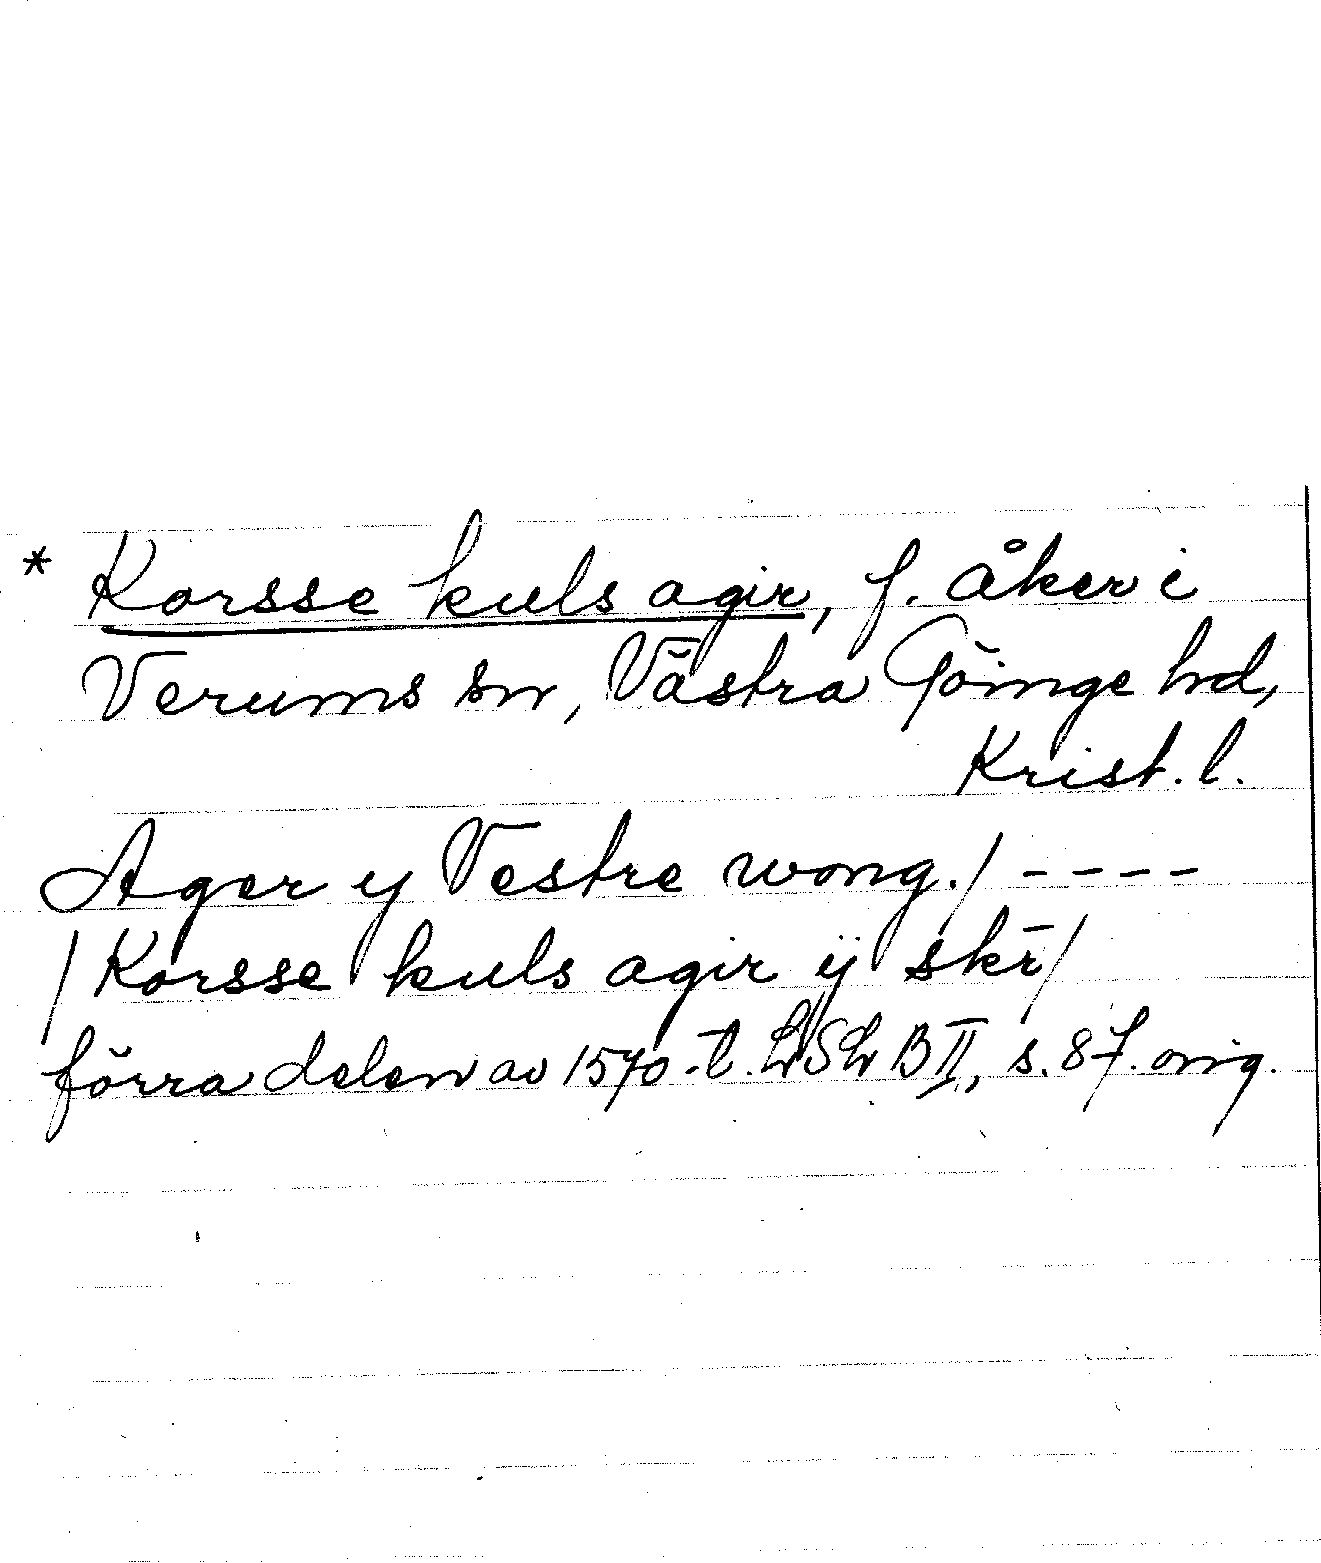 * Korsse kuls agir, f. åker i
Verums sn, Västra Göinge hd,
Krist. l.
Ager y Vestre wong./ ----
/Korsse kuls agir ÿ skr̄/
förra delen av 1570-t. B II, s. 87. orig.